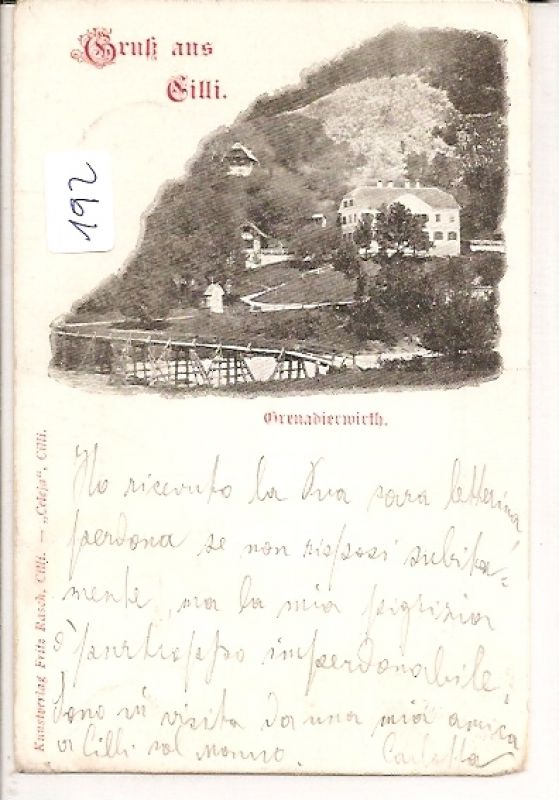 Gruß aus
Cilli.
192
Grenadierwirth.
Kunstverlag Fritz Rasch, Cilli. — „Celeja“, Cilli.
Ho ricevuto la Sua cara letterina
perdona se non risposi subita=
mente, ma la mia pigrizia
è purtroppo imperdonabile,
Sono in visita da una mia amica
a Cilli col Nonno. Carlotta